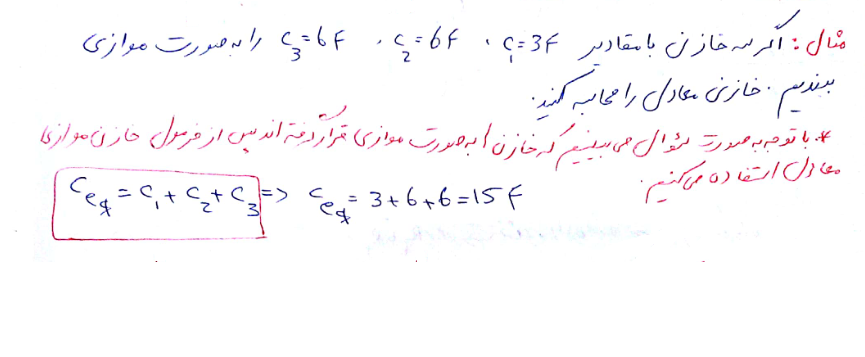 مثال: اگر سه خازن با مقادیر C₁=3F ، C₂=6F ، C₃=6F را به صورت موازی
ببندیم. خازن معادل را محاسبه کنید.
* با توجه به صورت سؤال می بینیم که خازن ها به صورت موازی قرار گرفته اند پس از فرمول خازن موازی
معادل استفاده می کنیم.
Ceq = C₁ + C₂ + C₃ => Ceq = 3+6+6=15F